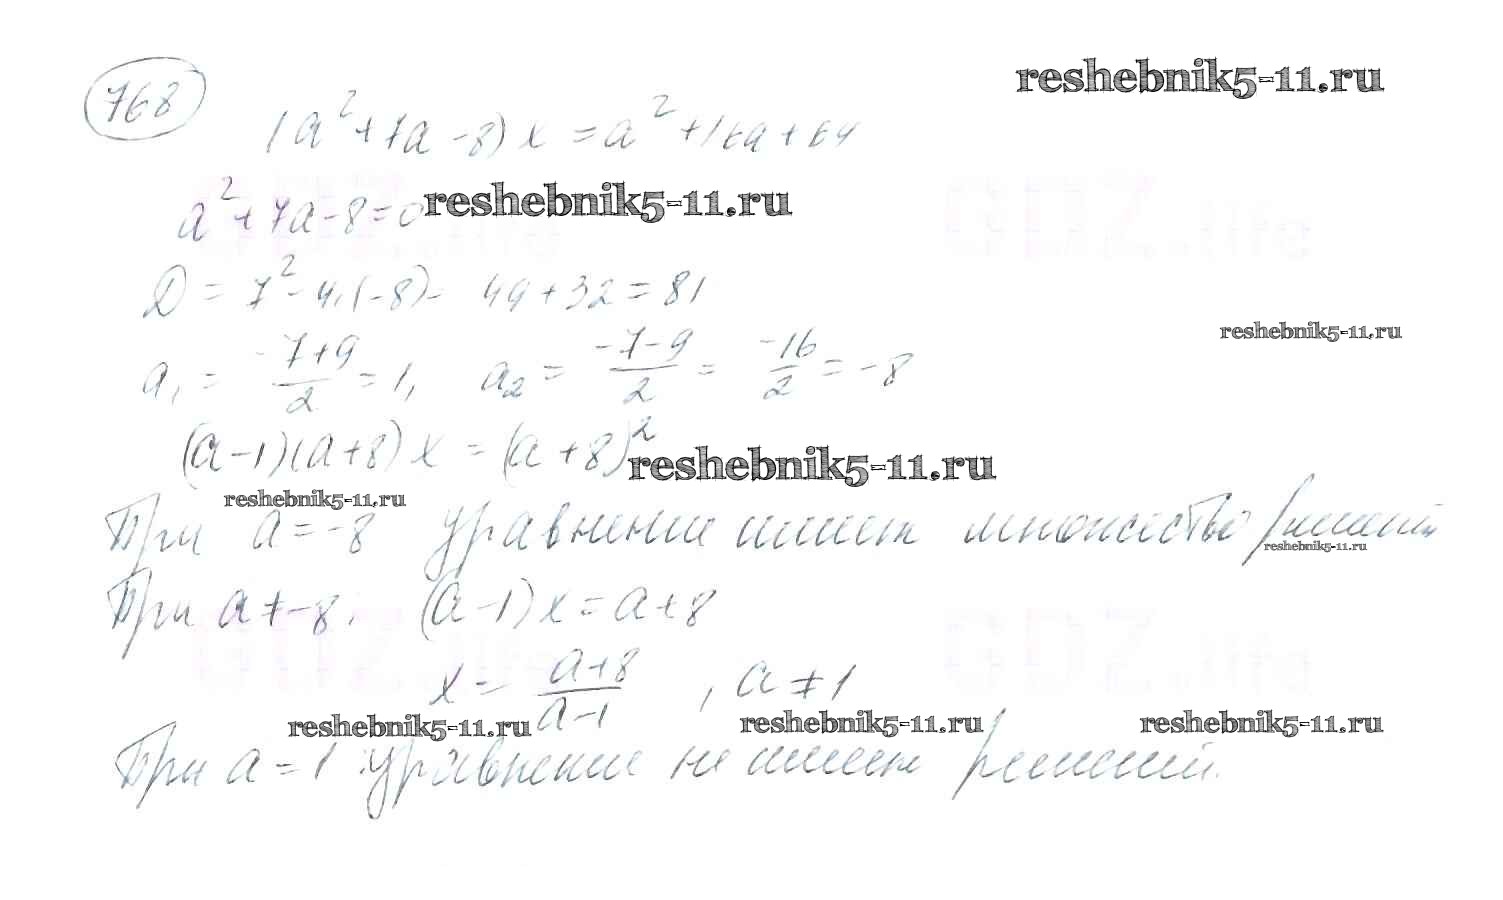 768
reshebnik5-11.ru
(a² + 7a - 8) x = a² + 16a + 64
a² + 7a - 8 = 0 reshebnik5-11.ru
D = 7² - 4·(-8) - 49 + 32 = 81
reshebnik5-11.ru
a₁ = -7+9/2 = 1, a₂ = -7-9/2 = -16/2 = -8
(a-1)(a+8) x = (a+8)²
reshebnik5-11.ru
reshebnik5-11.ru
При a = -8 уравнение имеет множество решений
reshebnik5-11.ru
При a ≠ -8: (a-1) x = a + 8
x = a+8/a-1, a ≠ 1
reshebnik5-11.ru reshebnik5-11.ru reshebnik5-11.ru
При a = 1 уравнение не имеет решений.
GDZ.life
GDZ.life
GDZ.life
GDZ.life